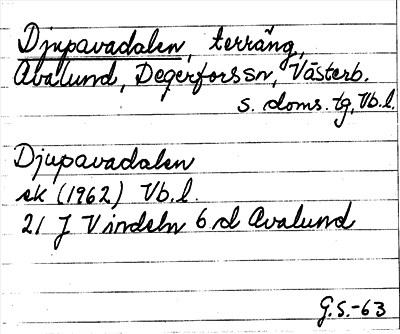 Djupavadalen, terräng,
Avalund, Degerfors sn, Västerb.
s. doms. tg, Vb. l.
Djupavadalen
ek (1962) Vb. l.
21 J Vindeln 6 d Avalund
G.S.-63